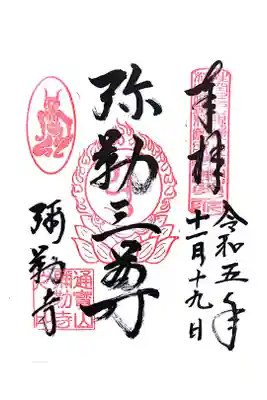 奉拝
令和五年
十一月十九日
弥勒三尊
彌勒寺
通寶山
彌勒寺